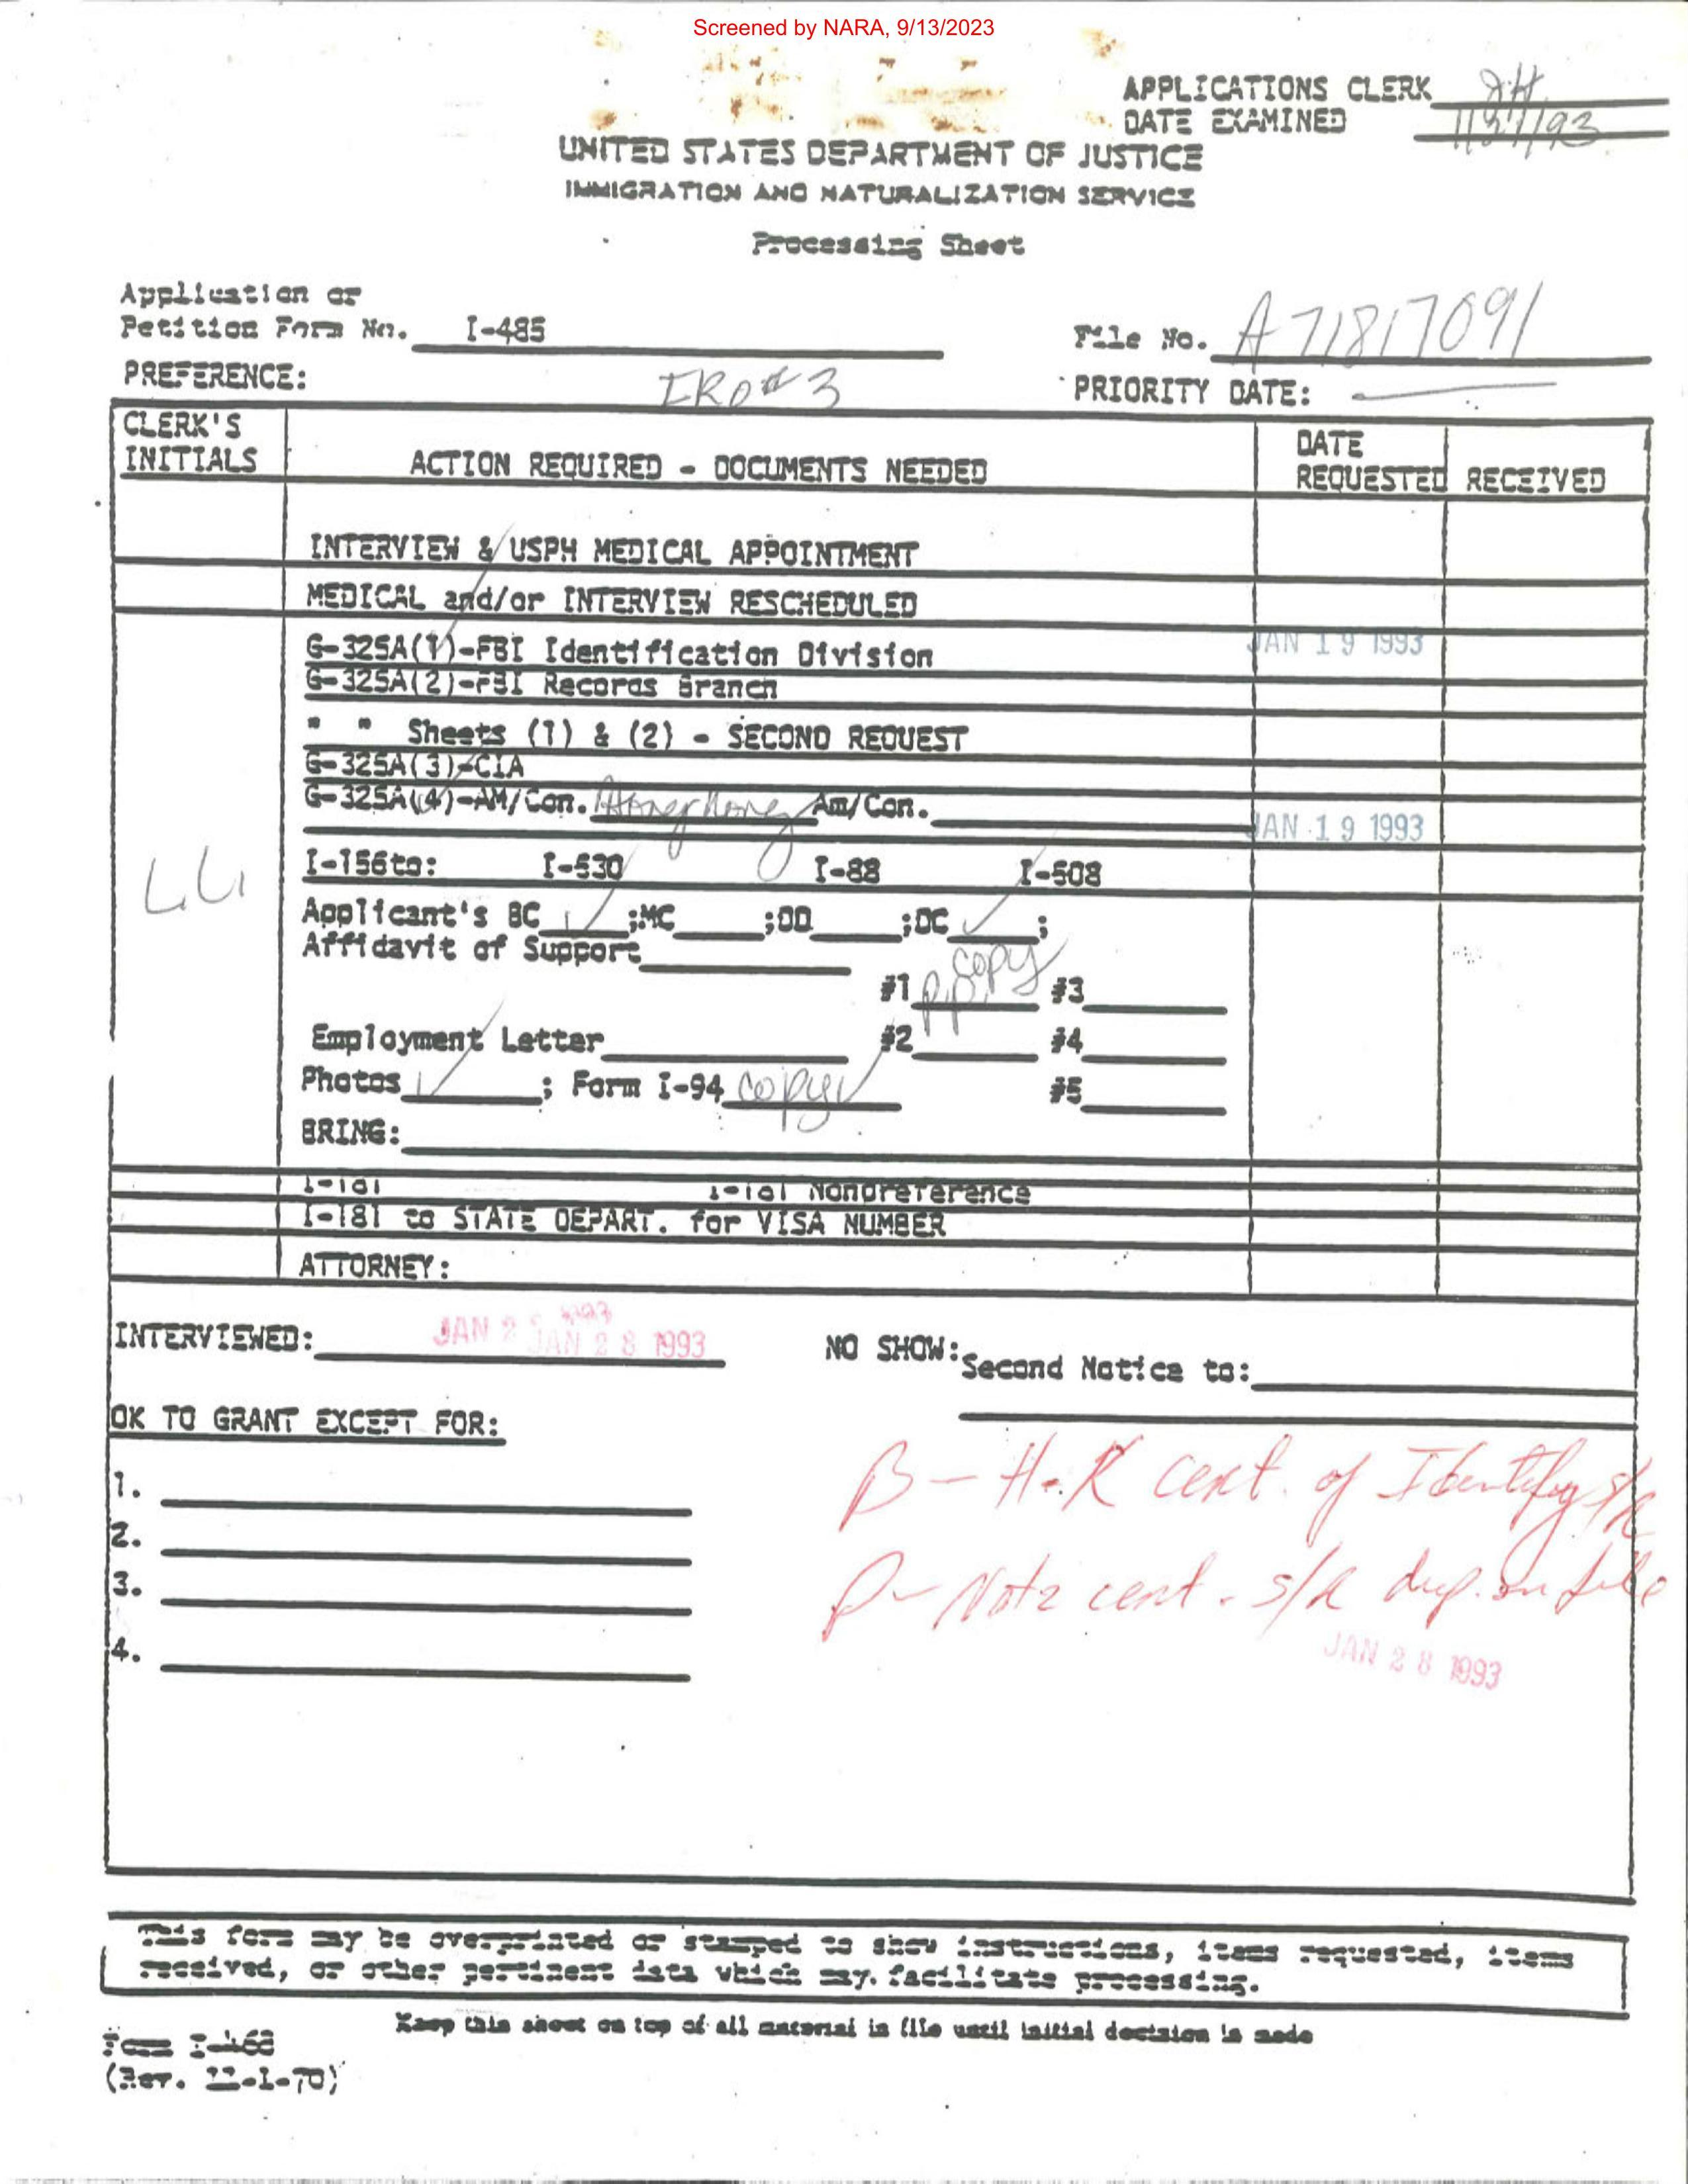 Screened by NARA, 9/13/2023
APPLICATIONS CLERK
DATE EXAMINED
UNITED STATES DEPARTMENT OF JUSTICE
IMMIGRATION AND NATURALIZATION SERVICE
Processing Sheet
Application or
Petition Form No. I-485
File No. A71817091
PREFERENCE: IR0#3
PRIORITY DATE: —
CLERK'S INITIALS
ACTION REQUIRED - DOCUMENTS NEEDED
DATE REQUESTED
RECEIVED
INTERVIEW & USPH MEDICAL APPOINTMENT
MEDICAL and/or INTERVIEW RESCHEDULED
G-325A(1)-FBI Identification Division JAN 19 1993
G-325A(2)-FBI Records Branch
" " Sheets (1) & (2) - SECOND REQUEST
G-325A(3)-CIA
G-325A(4)-AM/Con. Hong Kong Am/Con.
JAN 19 1993
I-156to: I-530 I-88 I-508
Applicant's BC ✓ ;MC ;DD ;DC ✓ ;
Affidavit of Support
copy
#1 p.p. #3
Employment Letter #2 #4
Photos ✓ ; Form I-94 copy ✓ #5
BRING:
I-181 I-181 Nonpreference
I-181 to STATE DEPART. for VISA NUMBER
ATTORNEY:
INTERVIEWED: JAN 28 1993
NO SHOW: Second Notice to:
OK TO GRANT EXCEPT FOR:
1.
2.
3.
4.
B - H.K cert. of Identity s/R
P - Notz cert. s/R dup. on file
JAN 28 1993
This form may be overprinted or stamped to show instructions, items requested, items
received, or other pertinent data which may. facilitate processing.
Keep this sheet on top of all material in file until initial decision is made
Form I-468
(Rev. 11-1-70)